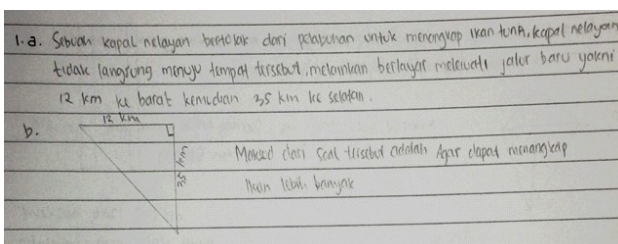 1.a. Sebuah kapal nelayan bertolak dari pelabuhan untuk menangkap ikan tuna, kapal nelayan
tidak langsung menuju tempat tersebut, melainkan berlayar melewati jalur baru yakni
12 km ke barat kemudian 35 km ke selatan.
b.
12 km
35 km
Maksud dari soal tersebut adalah Agar dapat menangkap
Ikan lebih banyak